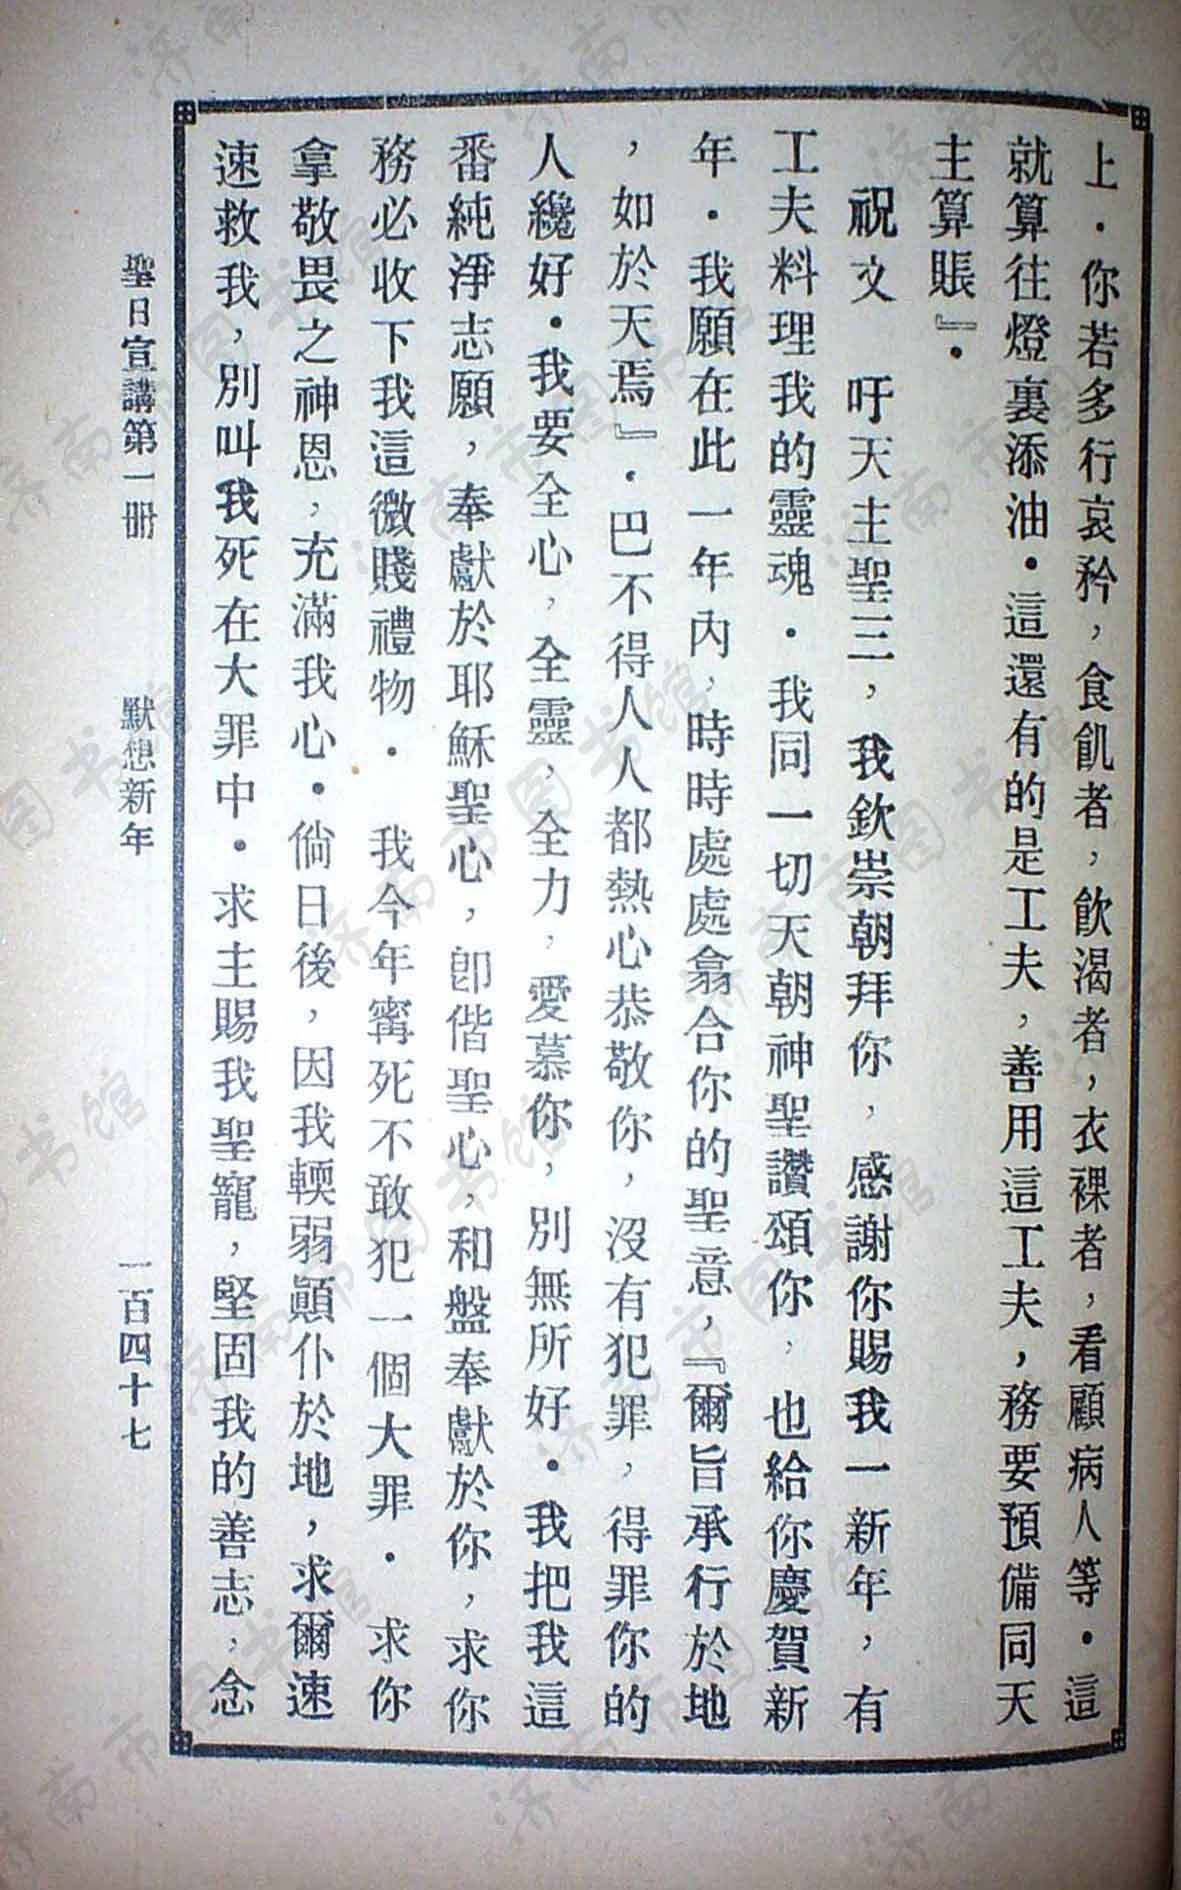 上．你若多行哀矜，食飢者，飲渴者，衣裸者，看顧病人等．這
就算往燈裏添油．這還有的是工夫，善用這工夫，務要預備同天
主算賬』．
祝文　吁天主聖三，我欽崇朝拜你，感謝你賜我一新年，有
工夫料理我的靈魂．我同一切天朝神聖讚頌你，也給你慶賀新
年．我願在此一年內，時時處處翕合你的聖意，『爾旨承行於地
，如於天焉』．巴不得人人都熱心恭敬你，沒有犯罪，得罪你的
人纔好．我要全心，全靈，全力，愛慕你，別無所好．我把我這
番純淨志願，奉獻於耶穌聖心，卽偕聖心，和盤奉獻於你，求你
務必收下我這微賤禮物．　我今年寗死不敢犯一個大罪．　求你
拿敬畏之神恩，充滿我心．倘日後，因我輭弱顚仆於地，求爾速
速救我，別叫我死在大罪中．求主賜我聖寵，堅固我的善志，念
聖日宣講第一册　默想新年　一百四十七
济南市图书馆